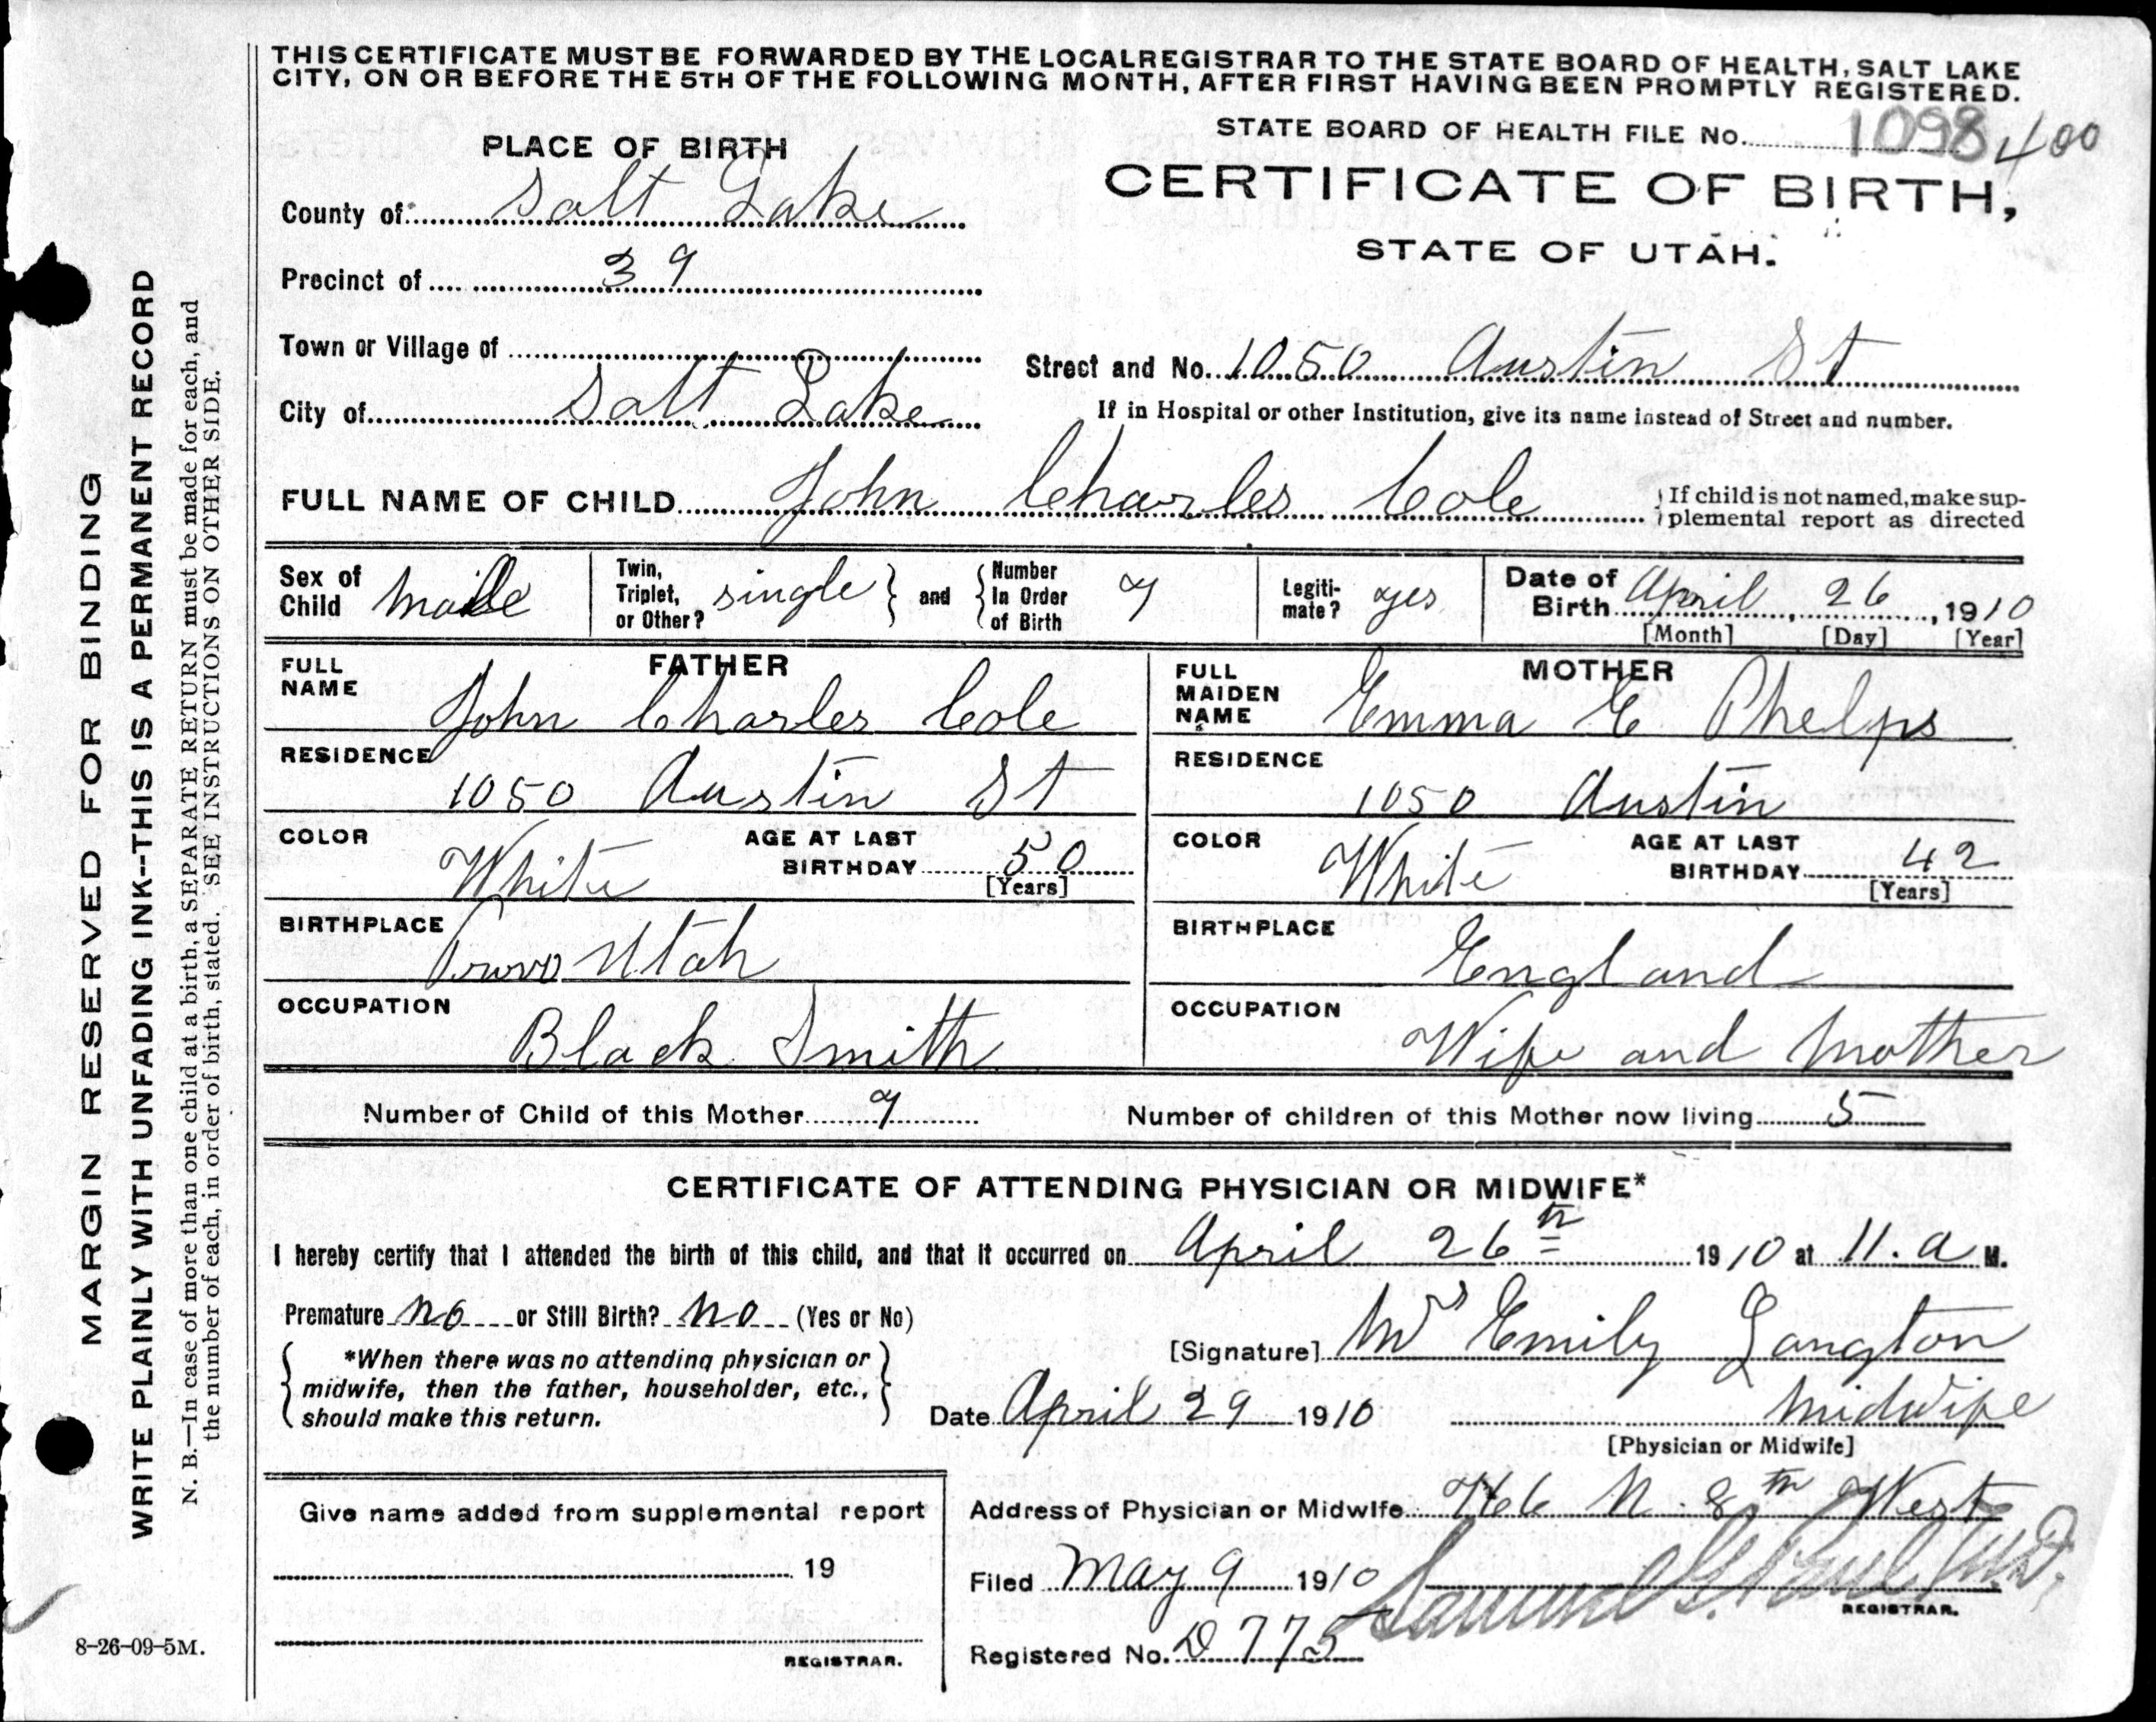 THIS CERTIFICATE MUST BE FORWARDED BY THE LOCAL REGISTRAR TO THE STATE BOARD OF HEALTH, SALT LAKE
CITY, ON OR BEFORE THE 5TH OF THE FOLLOWING MONTH, AFTER FIRST HAVING BEEN PROMPTLY REGISTERED.
STATE BOARD OF HEALTH FILE No. 1098 400
PLACE OF BIRTH
CERTIFICATE OF BIRTH,
STATE OF UTAH.
County of Salt Lake
Precinct of 39
Town or Village of
Street and No. 1050 Austin St
City of Salt Lake
If in Hospital or other Institution, give its name instead of Street and number.
FULL NAME OF CHILD John Charles Cole
If child is not named, make sup-
plemental report as directed
Sex of Child Male
Twin, Triplet, or Other? single
and
Number In Order of Birth 7
Legiti-mate? yes
Date of Birth April 26, 1910
[Month] [Day] [Year]
FATHER
FULL NAME
John Charles Cole
RESIDENCE
1050 Austin St
COLOR
White
AGE AT LAST BIRTHDAY 50
[Years]
BIRTHPLACE
Provo Utah
OCCUPATION
Black Smith
MOTHER
FULL MAIDEN NAME
Emma E Phelps
RESIDENCE
1050 Austin
COLOR
White
AGE AT LAST BIRTHDAY 42
[Years]
BIRTHPLACE
England
OCCUPATION
Wife and Mother
Number of Child of this Mother 7
Number of children of this Mother now living 5
CERTIFICATE OF ATTENDING PHYSICIAN OR MIDWIFE*
I hereby certify that I attended the birth of this child, and that it occurred on April 26th 1910 at 11. a M.
Premature no or Still Birth? no (Yes or No)
*When there was no attending physician or
midwife, then the father, householder, etc.,
should make this return.
[Signature] Mrs Emily Langton
Date April 29 1910
Midwife
[Physician or Midwife]
Give name added from supplemental report
19
REGISTRAR.
Address of Physician or Midwife N. 8th West
Filed May 9 1910
Samuel G. Paul M.D.
REGISTRAR.
Registered No. D 775
MARGIN RESERVED FOR BINDING
WRITE PLAINLY WITH UNFADING INK--THIS IS A PERMANENT RECORD
N. B.—In case of more than one child at a birth, a SEPARATE RETURN must be made for each, and
the number of each, in order of birth, stated. SEE INSTRUCTIONS ON OTHER SIDE.
8-26-09-5M.